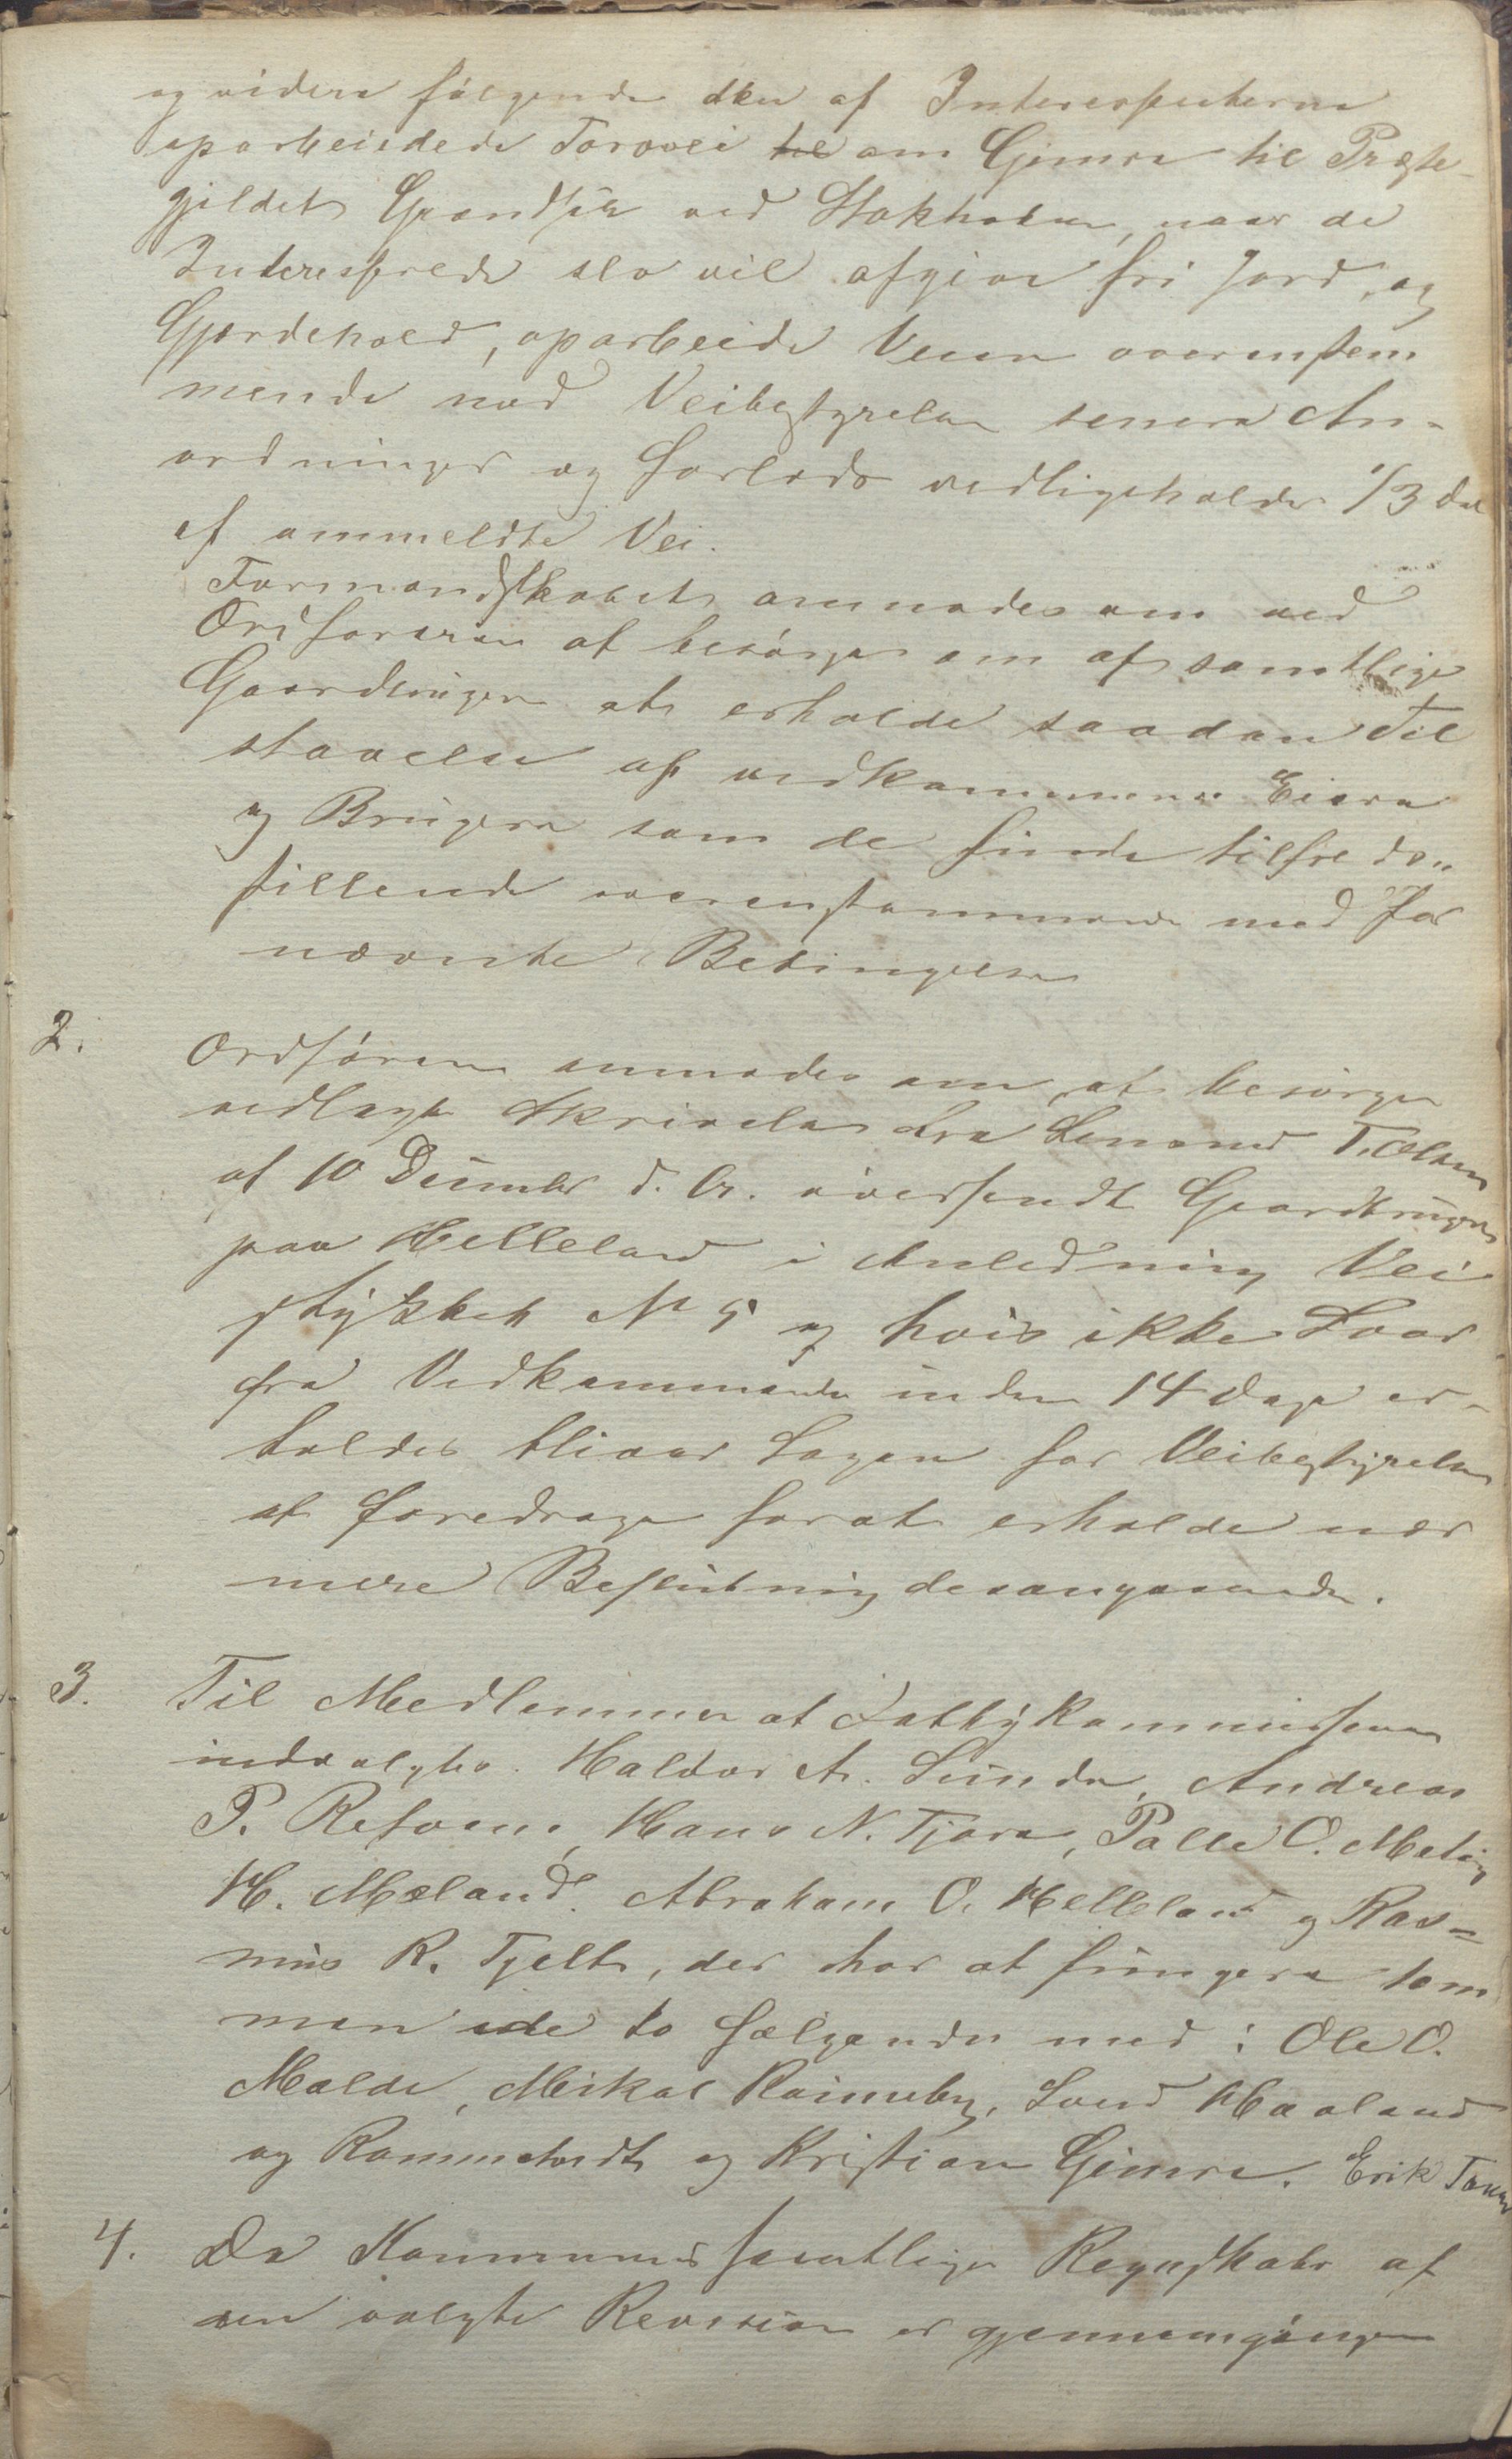 og videre følgende den af Interessenterne
oparbeidede Torvvei til om Gimre til Præste-
gjeldets Grændse ved Stokholm, naar de
Interesserede selv vil afgive fri Jord og
Gjærdehold, oparbeide Veien overenstem
mende med Veibestyrelsen senere An-
ordninger og forlods vedligeholde 1/3 del
af ommeldte Vei.
Formandskabet anmodes om ved
Ordføreren at besørge om af samtlige
Gaardbrugere at erholde saadan Til
staaelse af vedkommende Eiere
og Brugere som de finde tilfreds„
stillende overenstemmende med for
nævnte Betingelse
2. Ordføreren anmodes om, at besørge
vedlagte Skrivelse fra Lensmand T. Olsen
af 10 December d. A. oversendt Gaardbrugerne
paa Helleland i Anledning Vei
stykket No 5 og hvis ikke Svar
fra Vedkommende inden 14 Dage er-
holdes bliver Sagen for Veibestyrelsen
at foredrage forat erholde nær
mere Beslutning desangaaende.
3. Til Medlemmer af Fattigkommissionen
indvalgtes. Haldor A. Sunde, Andreas
P. Refsnes, Hans N. Tjora, Palle O. Meling
H. Mæland. Abraham O. Helleland og Ras-
mus R. Tjelta, der har at fungere som
men ide to følgende med: Ole O.
Malde, Mikal Raimeby, Svend Haaland
og Rommetvedt og Kristian Gimre. Erik Tanan
4. Da Kommunens samtlige Regnskaber af
den valgte Revision er gjennemgangen